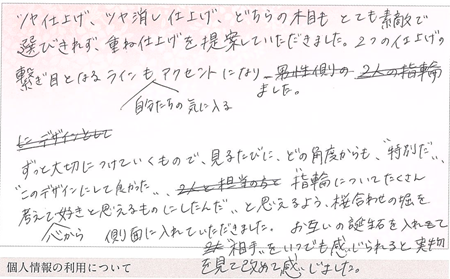 ツヤ仕上げ、ツヤ消し仕上げ、どちらの木目もとても素敵で
選びきれず、重ね仕上げを提案していただきました。2つの仕上げの
繋ぎ目となるラインもアクセントになり 男性側の 2人の指輪
ました。
自分たちの気に入る
にデザインとして
ずっと大切につけていくもので、見るたびに、どの角度からも、“特別だ”、
“このデザインにして良かった”、2人と担当の方と “指輪についてたくさん
考えて好きと思えるものにしたんだ”と思えるよう、桜合わせの堀を
心から 側面に入れていただきました。お互いの誕生石を入れ
“相手”をいつでも感じられると実物
を見て改めて感じました。
個人情報の利用について